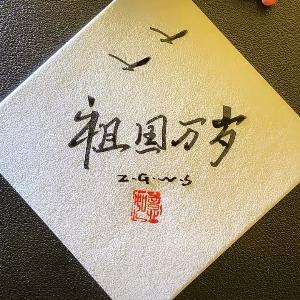 祖国万岁
Z.G.W.S